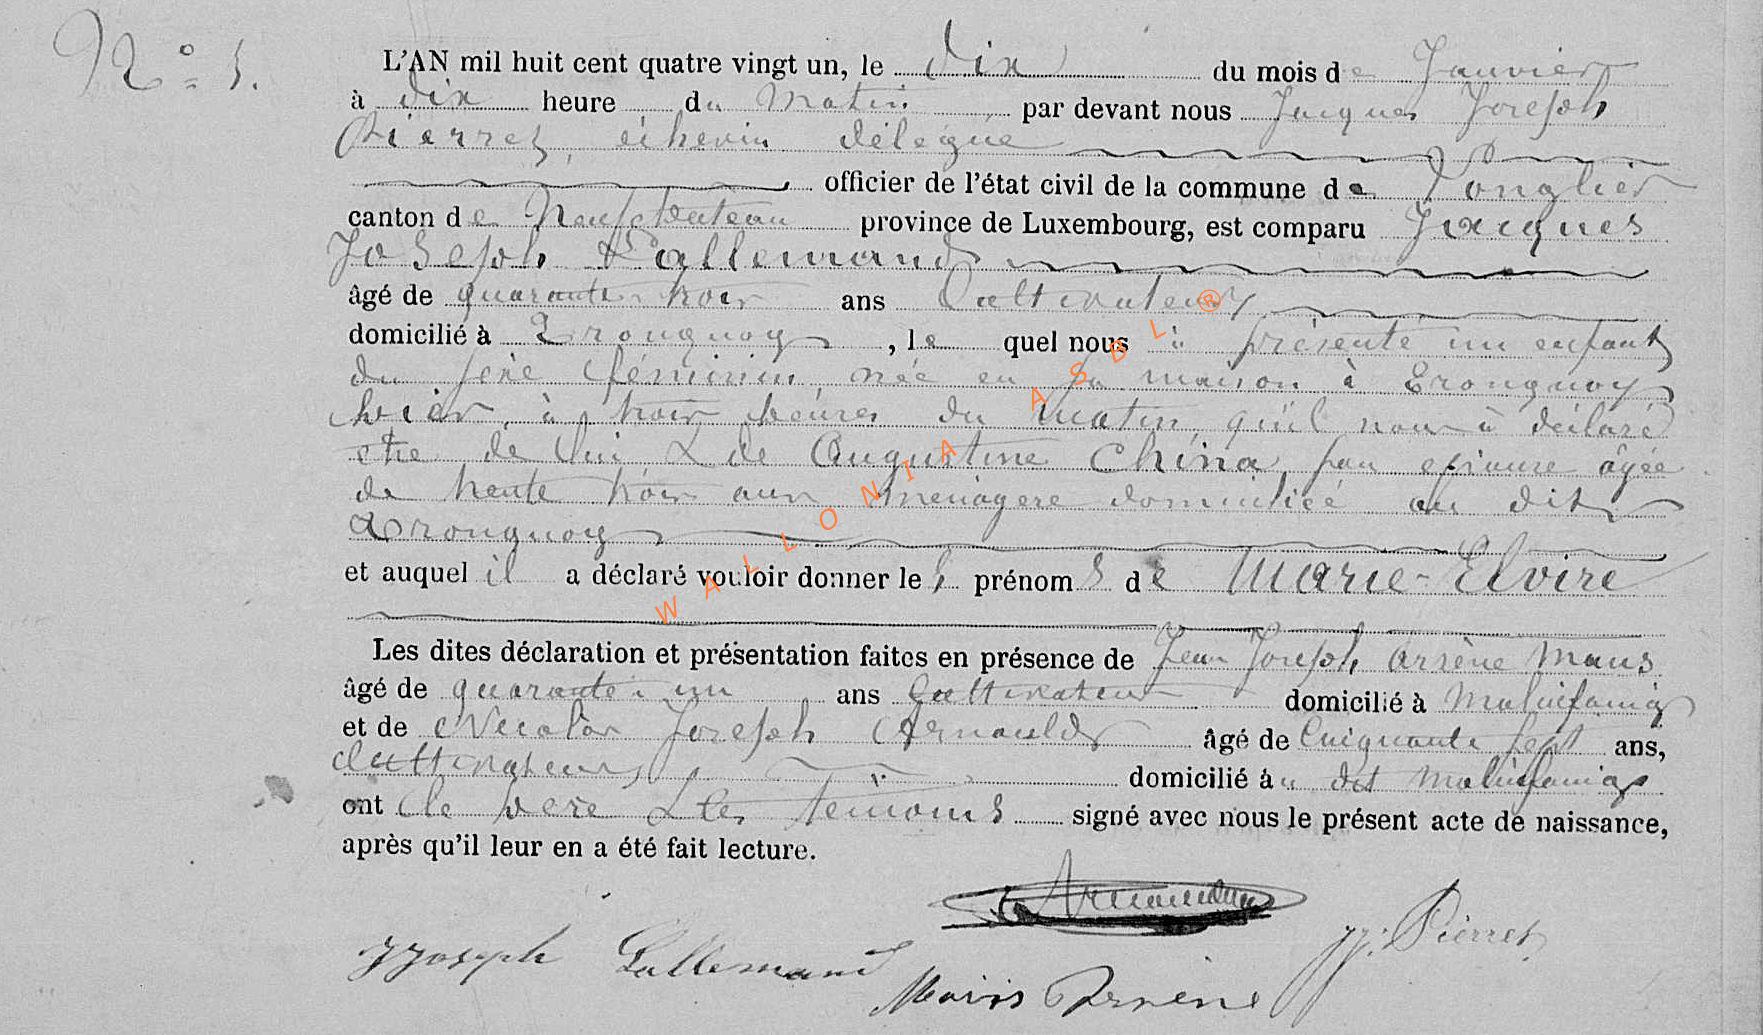 N° 5.
L'AN mil huit cent quatre vingt un, le dix du mois de Janvier
à dix heure du matin par devant nous Jacques Joseph
Pierret, échevin délégué
officier de l'état civil de la commune de Longlier
canton de Neufchâteau province de Luxembourg, est comparu Jacques
Joseph Lallemand
âgé de quarante trois ans Cultivateur
domicilié à Tronquoy, le quel nous a présenté un enfant
du sexe féminin, née en sa maison à Tronquoy
hier, à trois heures du matin, qu'il nous a déclaré
être de lui & de Augustine China, son épouse âgée
de trente trois ans ménagère domiciliée au dit
Tronquoy
et auquel il a déclaré vouloir donner les prénoms de Marie-Elvire
Les dites déclaration et présentation faites en présence de Jean Joseph Arsène Maus
âgé de quarante un ans Cultivateur domicilié à Molinfaing
et de Nicolas Joseph Arnould âgé de Cinquante sept ans,
Cultivateur, domicilié au dit Molinfaing
ont le père & les témoins signé avec nous le présent acte de naissance,
après qu'il leur en a été fait lecture.
JJoseph Lallemand
Arsène
JJ. Pierret
WALLONIA ASBL ®